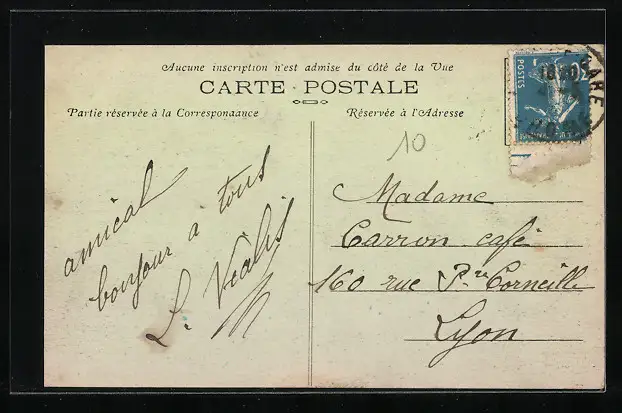 Aucune inscription n'est admise du côté de la Vue
CARTE POSTALE
Partie réservée à la Correspondance
Réservée à l'Adresse
POSTES
GARE
10
amical
bonjour a tous
L. Vialis
Madame
Carron café
160 rue P.re Corneille
Lyon